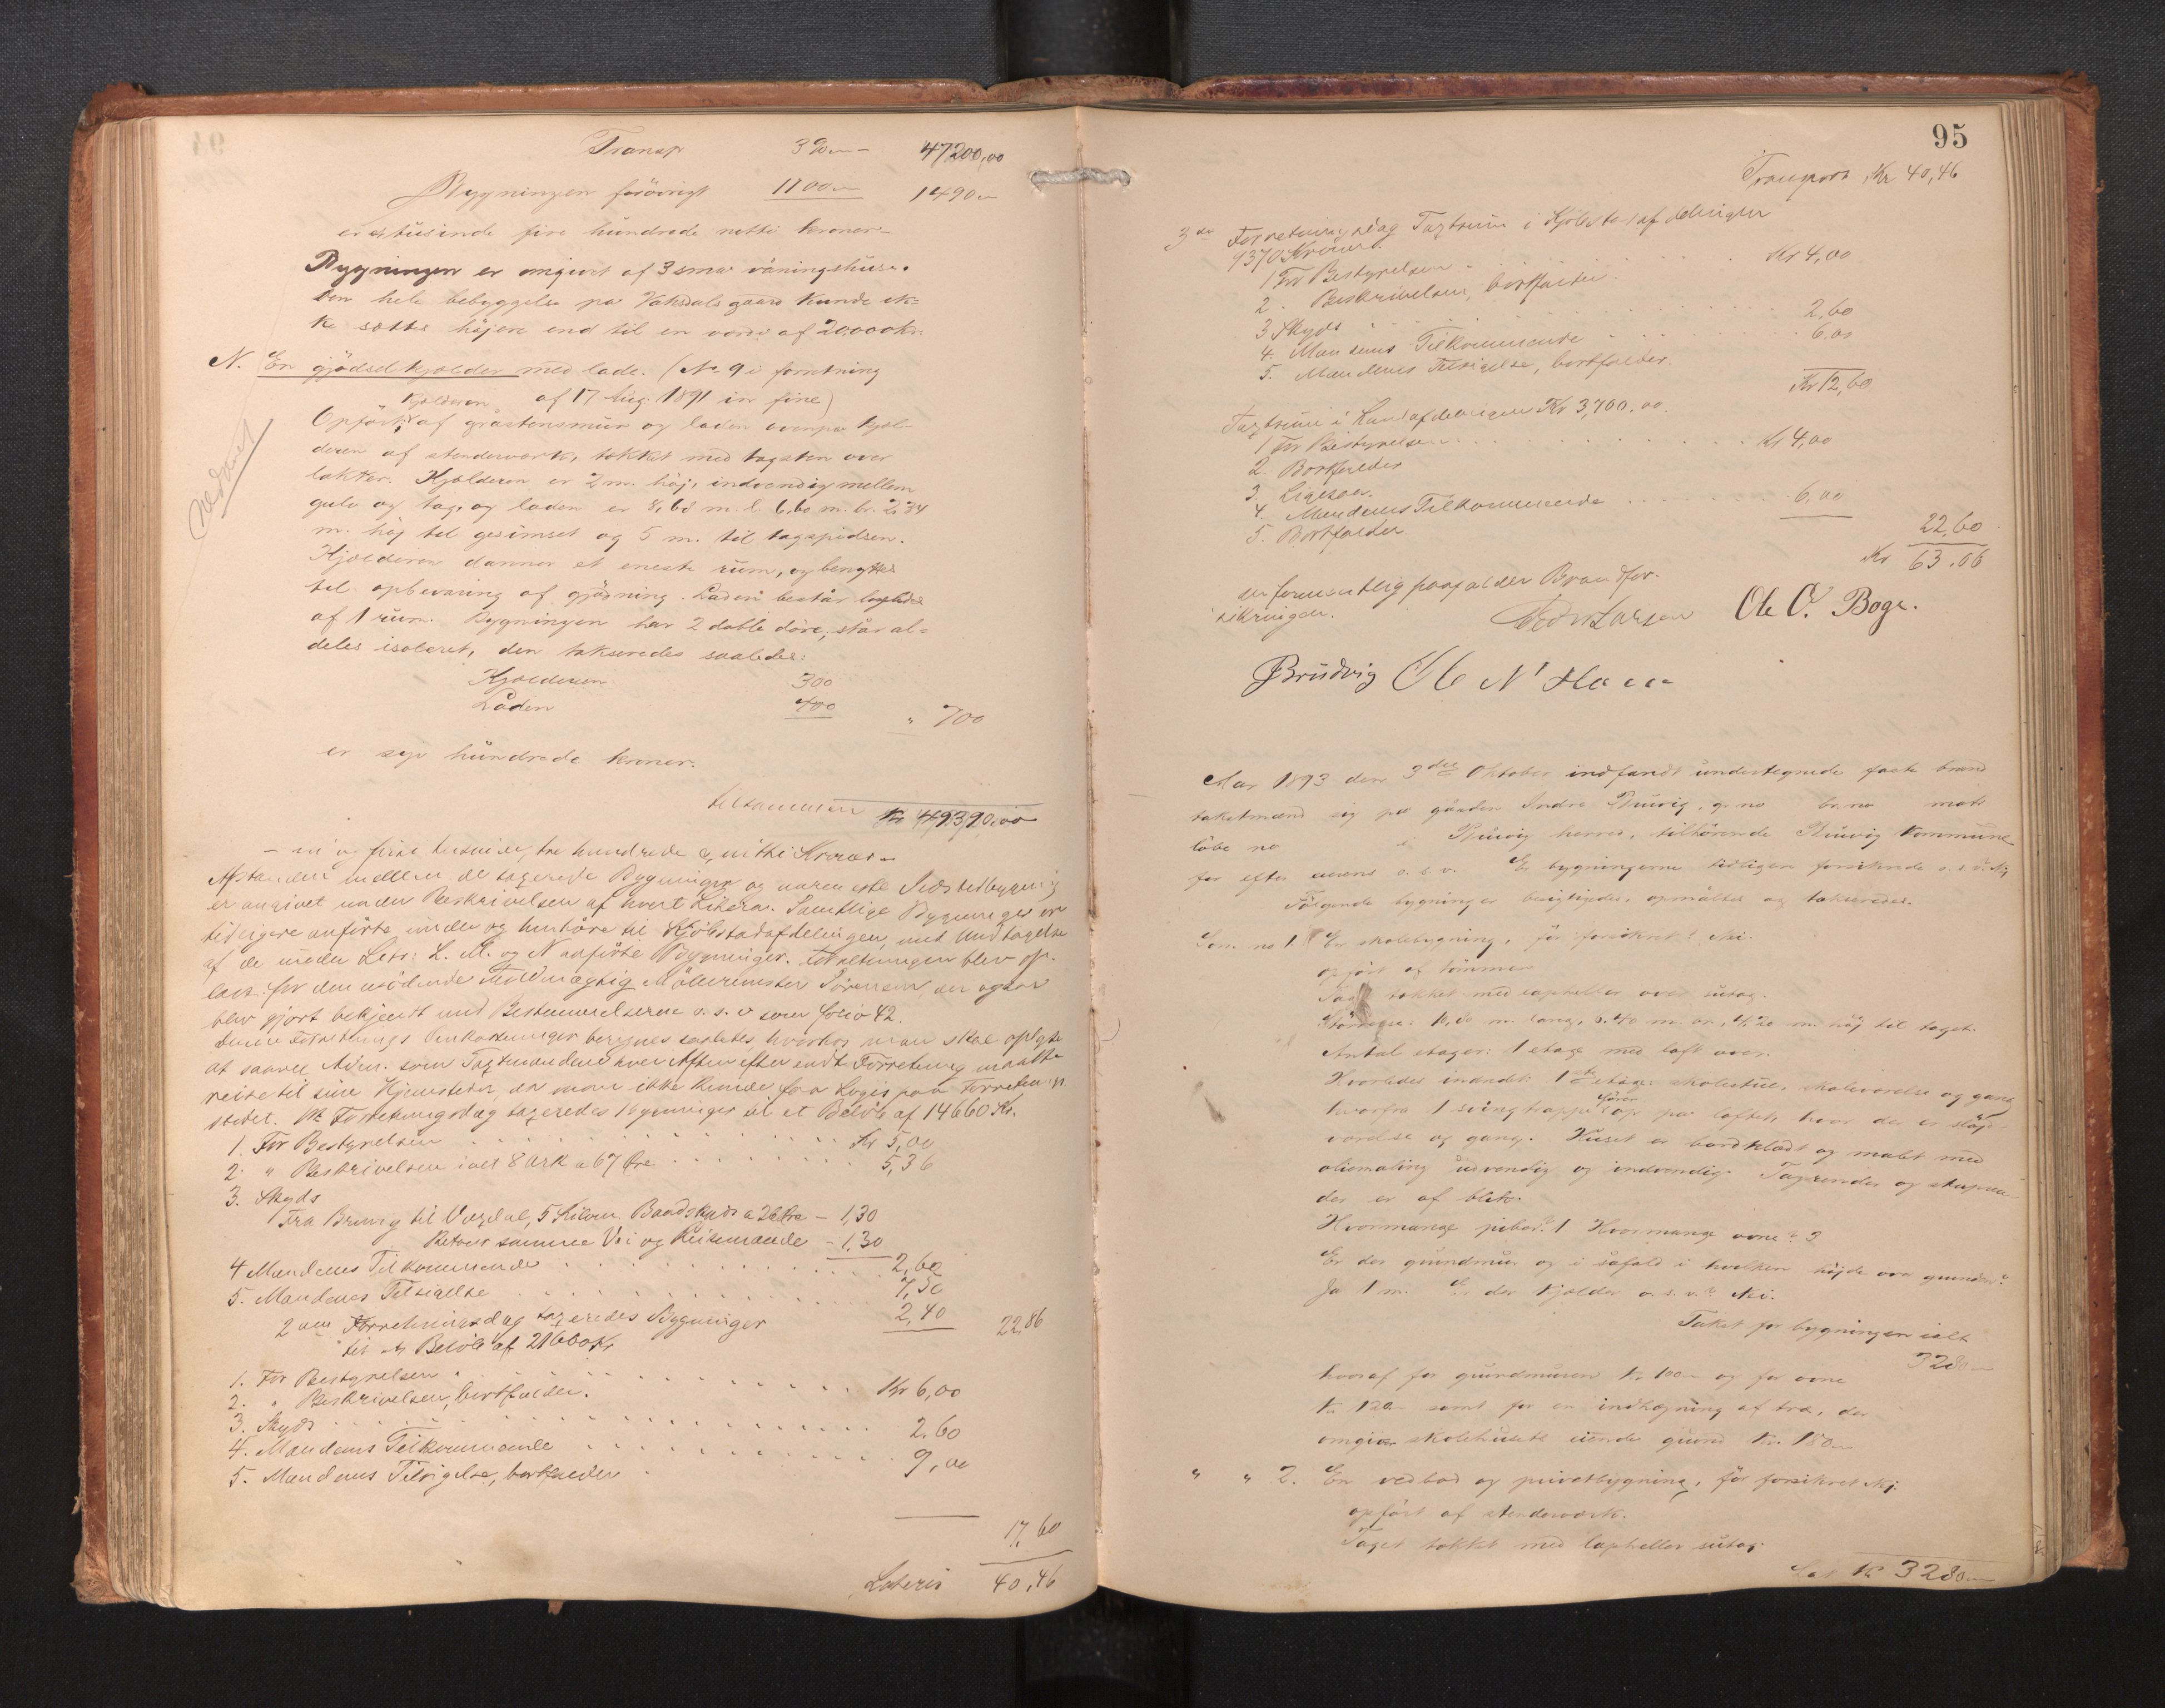 Transp 390,- 47200,00
Bygningen forövrigt 1100,- 1490,-
er ettusinde fire hundrede nitti kroner.-
Bygningen er omgivet af 3 små våningshuse.
Den hele bebyggelse på Vaksdals gaard kunde ik-
ke sættes höjere end til en værdi af 20.000 kr.
N. En gjödselkjælder med lade. (No 9 i forretning
af 17 Aug. 1891 in fine)
Kjælderen
Opfört af gråstensmur og laden ovenpå kjæl-
deren af stenderværk, tækket med tagsten over
lækter. Kjælderen er 2 m. höj, indvendig mellem
gulv og tag, og laden er 8,68 m. l. 6,60 m. br. 2,34
m. höj til gesimset og 5 m. til tagspidsen.
Kjælderen danner et eneste rum, og benyttes
til opbevaring af gjödning. Laden består ligeledes
af 1 rum. Bygningen har 2 doble döre, står al-
deles isoleret, den takseredes saaledes:
Kjælderen 300
Laden 400 " 700
er syv hundrede kroner.
Nedrevet
tilsammen Kr 49390,00
- ni og firti tusinde, tre hundrede og nitti Kroner -
Afstanden mellem de taxerede Bygninger og nærmeste Nabobygning
er angivet under Beskrivelsen af hvert Litera. Samtlige Bygninger er
tidligere anförte under og henhöre til Kjöbstadafdelingen, med Undtagelse
af de under Litr: L. M. og N anförte Bygninger. Forretningen blev op-
læst for den mödende Fuldmægtig Möllermester Sörensen, der ogsaa
blev gjort bekjendt med Bestemmelserne o. s. v som folio 42.
Denne Forretnings Omkostninger beregnes saaledes, hvorhos man skal oplyse
at saavel Adm. som Taxtmændene hver Aften efter endt Forretning maatte
reise til sine Hjemsteder, da man ikke kunde faa Logis paa Forretnings-
stedet. 1ste Forretningsdag taxeredes Bygninger til et Belöb af 14660 Kr.
1. For Bestyrelsen Kr 5,00
2. " Beskrivelsen ialt 8 Ark a 67 Öre 5,36
3. Skyds
Fra Bruvig til Vaxdal, 5 Kilom. Baadskyds a 26 Öre - 1,30
Retour samme Vei og Reisemaade - 1,30
2,60
4 Mændenes Tilkommende 7,50
5. Mændenes Tilsigelse 2,40 22,86
2den Forretningsdag taxeredes Bygninger
til et Belöb af 21660 Kr
1. For Bestyrelsen Kr 6,00
2. " Beskrivelsen, bortfalder.
3. Skyds 2,60
4. Mændenes Tilkommende 9,00
5. Mændenes Tilsigelse, bortfalder
17,60
Lateris 40,46
95
Transport Kr 40,46
3die Forretningsdag Taxtsum i Kjöbstadafdelingen
9370 Kroner.
1 For Bestyrelsen Kr 4,00
2. Beskrivelsen, bortfalder.
3 Skyds 2,60
4. Mændenes Tilkommende 6,00
5. Mændenes Tilsigelse, bortfalder.
Kr 12,60
Taxtsum i Landafdelingen Kr 3,700,00.
1 For Bestyrelsen Kr 4,00
2. Bortfalder
3. Ligesaa.
4. Mændenes Tilkommende 6,00
5. Bortfalder
22,60
Kr 63,06
der formentlig paafalder Brandfor-
sikringen.
Larsen Ole O. Boge.
Brudvig Ole N
Aar 1893 den 3die Oktober indfandt undertegnede faste brand
takstmænd sig på gården Indre Bruvig, g. no br. no matr
löbe no i Bruvig herred, tilhörende Bruvig kommune
for efter eierens o. s. v. Er bygningerne tidligere forsikrede o. s. v. Nei
Fölgende bygninger besigtigedes, opmåltes og takseredes.
Lon. no 1. En skolebygning, för forsikret? Nei.
opfört af tömmer
Taget tækket med lapheller over sutag.
Störrelse: 10,80 m. lang, 8.40 m. br., 4,20 m. höj til taget.
Antal etager: 1 etage med loft over.
Hvorledes indredet: 1ste etage: skolestue, skoleværelse og gang
hvorfra 1 svingtrappe förer op på loftet, hvor der er slöjd-
værelse og gang. Huset er bordklædt og malet med
oliemaling udvendig og indvendig. Tagrender og
der er af blik.
Hvormange piber? 1 Hvormange ovne? 3
Er der grundmur og i såfald i hvilken höjde over grunden?
Ja 1 m. Er der kjælder o. s. v.? Nei.
Takst for bygningen ialt
3280,-
hvoraf for grundmuren kr. 100,- og for ovne
kr 120,- samt for en indhegning af træ, der
omgiver skolehusets eiende grund kr. 180,-
" " 2. En vedbod og privetbygning, för forsikret Nei.
opfört af stenderværk.
Taget tækket med lapheller sutag.
Lat. Kr 3280,-